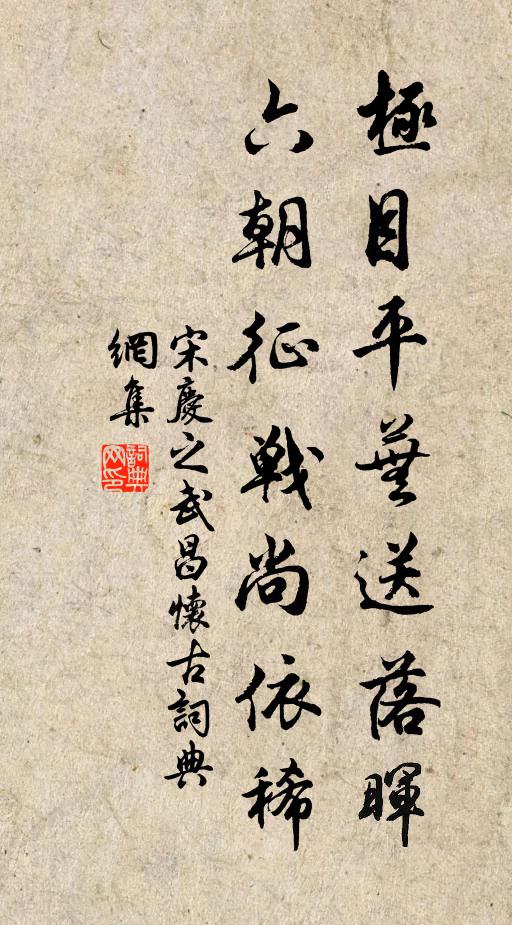 極目平蕪送落暉
六朝征戰尚依稀
宋慶之武昌懷古詞典
網集
詞典
网印